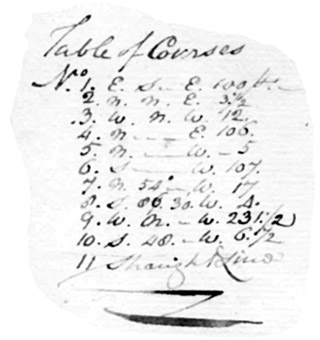 Table of Courses
No. 1. E. S. - E. 100
2. N. N. E. 3 1/2
3. W. N. W. 12.
4. N. - - E. 106.
5 N. - W. - 5
6. S - W. 107.
7. N. 54° - W. 17
8. S. 86.30. W. 4.
9. W. N. - W. 231 1/2
10. S. 48. - W. 6 1/2
11 Straight Line